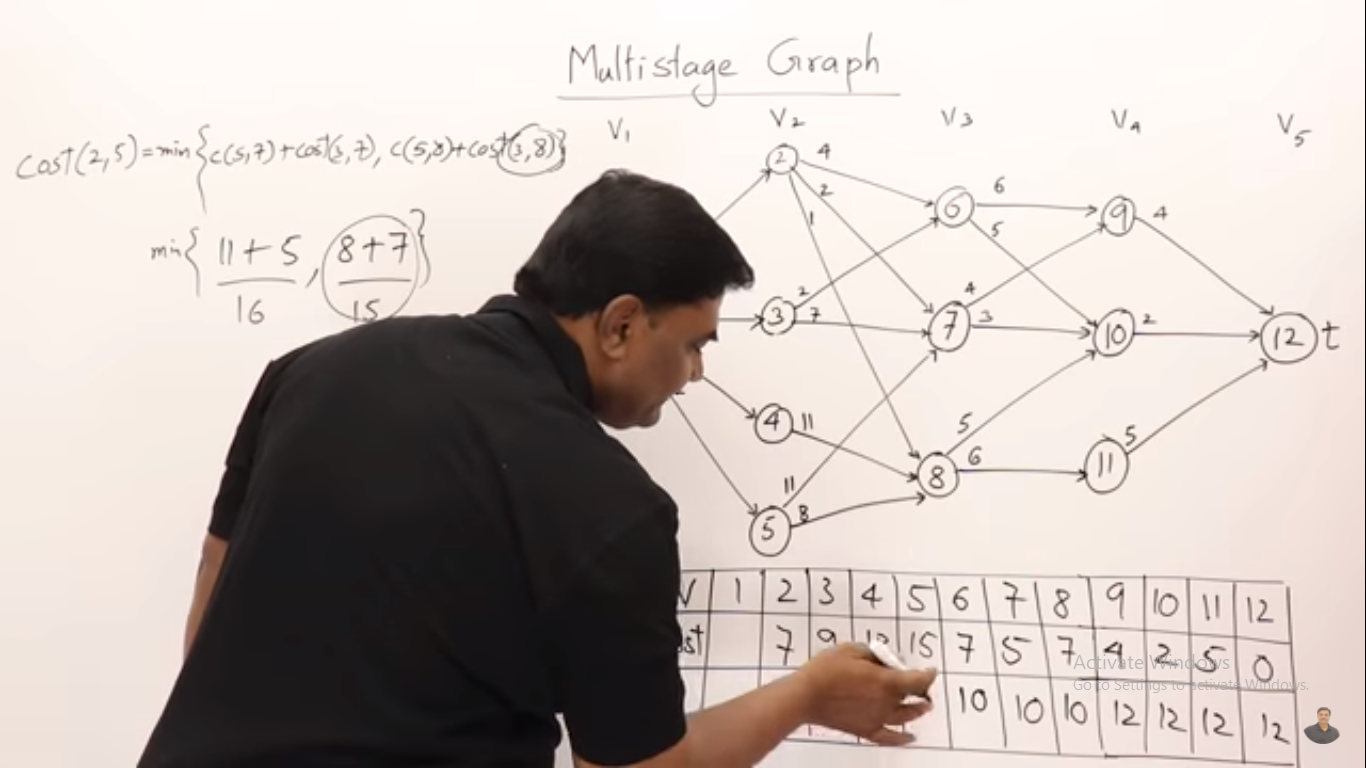 Multistage Graph
V1 V2 V3 V4 V5
Cost(2,5)=min{c(5,7)+cost(3,7), c(5,8)+cost(3,8)}
min{ 11+5, 8+7 }
16 15
2 4 2 1
6 6 5
9 4
3 2 7
7 4 3
10 2
12 t
4 11
8 5 6
11 5
5 11 8
V 1 2 3 4 5 6 7 8 9 10 11 12
7 9 15 7 5 7 4 2 5 0
10 10 10 12 12 12 12
Activate Windows
Go to Settings to activate Windows.